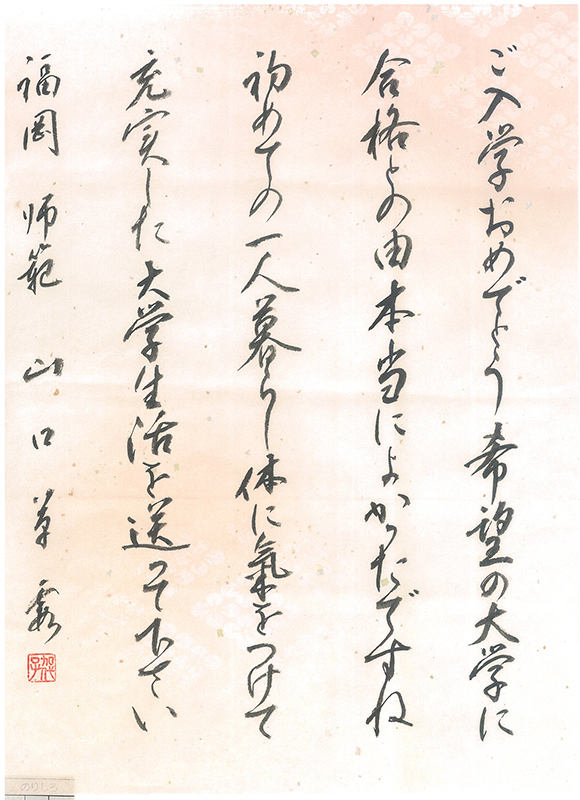 ご入学おめでとう希望の大学に
合格との由本当によかったですね
初めての一人暮らし体に氣をつけて
充実した大学生活を送って下さい
福岡 師範 山口草
のりしろ